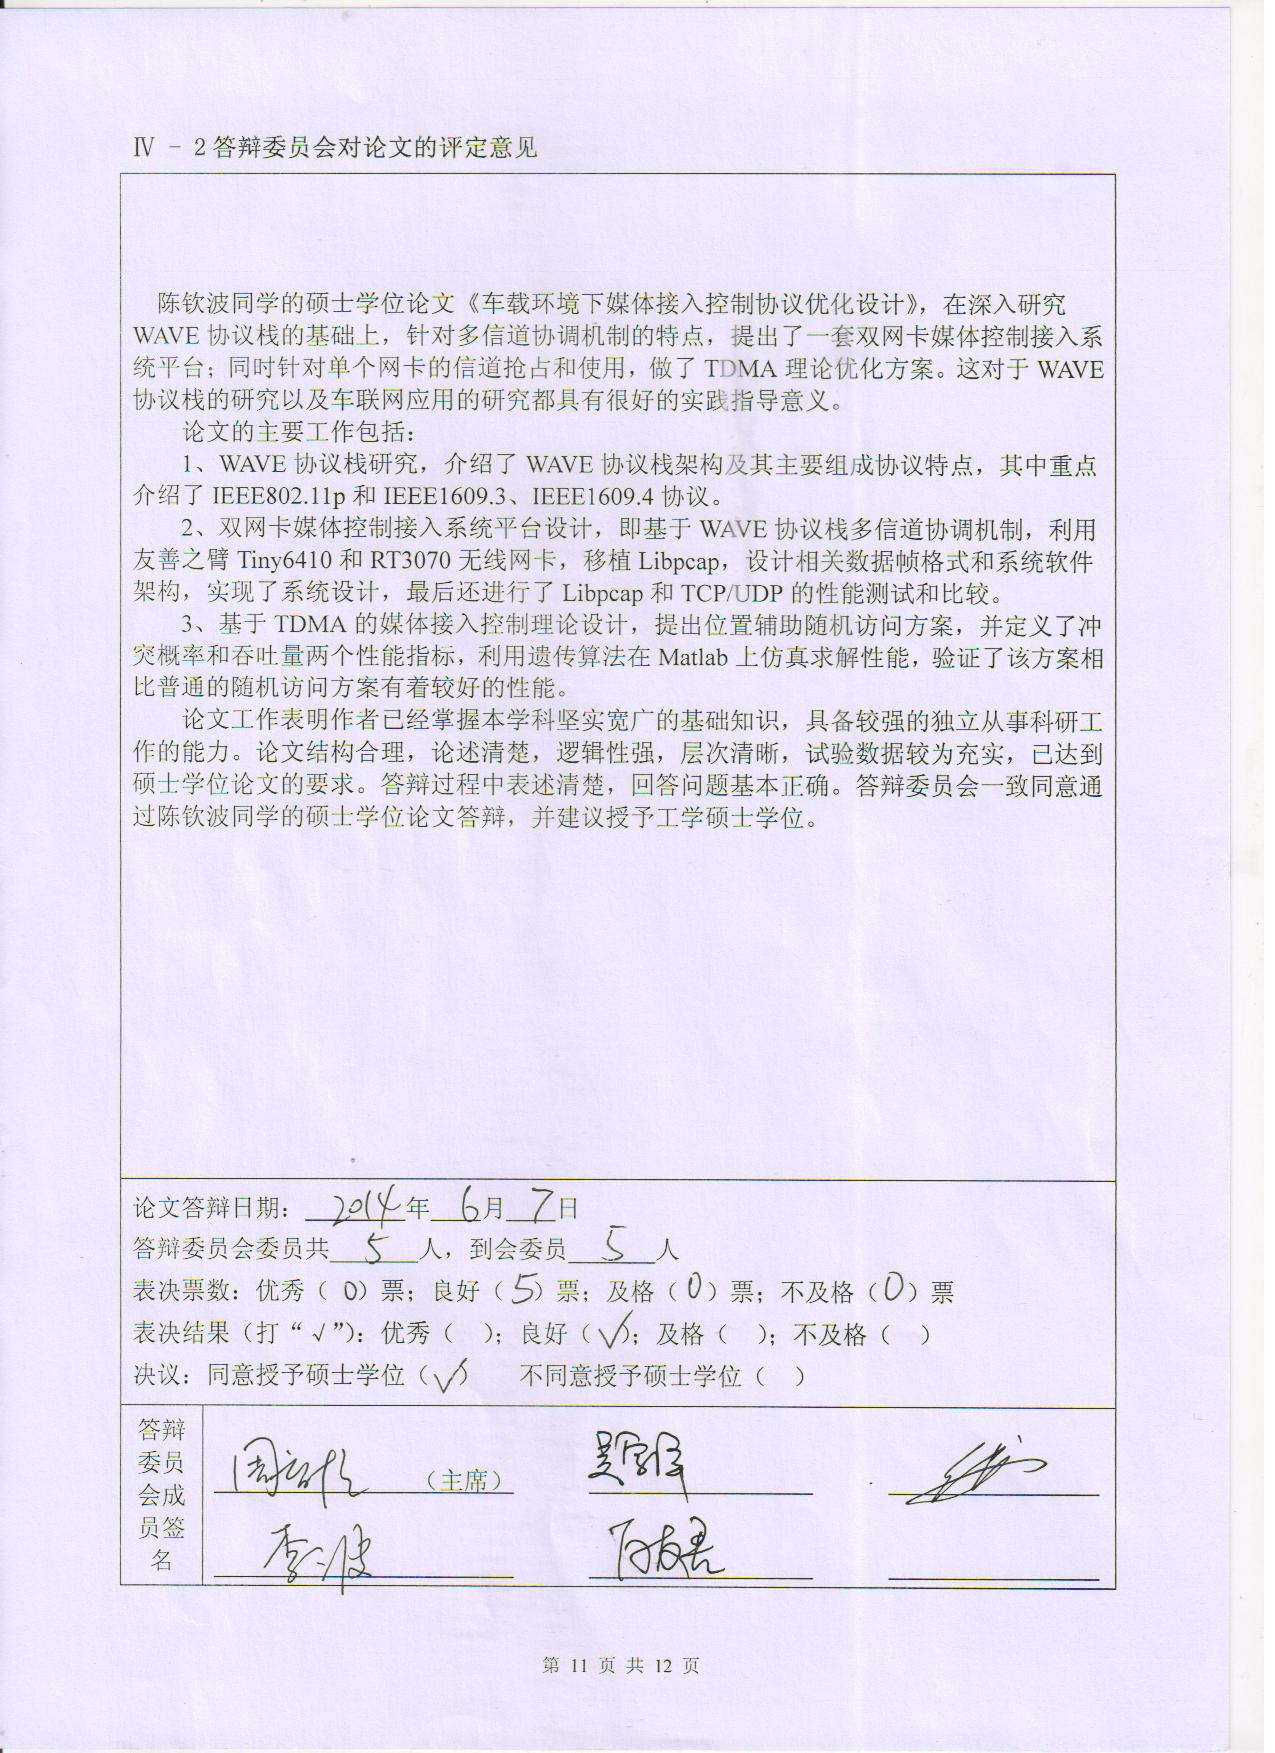 Ⅳ － 2 答辩委员会对论文的评定意见
陈钦波同学的硕士学位论文《车载环境下媒体接入控制协议优化设计》，在深入研究
WAVE 协议栈的基础上，针对多信道协调机制的特点，提出了一套双网卡媒体控制接入系
统平台；同时针对单个网卡的信道抢占和使用，做了 TDMA 理论优化方案。这对于 WAVE
协议栈的研究以及车联网应用的研究都具有很好的实践指导意义。
论文的主要工作包括：
1、WAVE 协议栈研究，介绍了 WAVE 协议栈架构及其主要组成协议特点，其中重点
介绍了 IEEE802.11p 和 IEEE1609.3、IEEE1609.4 协议。
2、双网卡媒体控制接入系统平台设计，即基于 WAVE 协议栈多信道协调机制，利用
友善之臂 Tiny6410 和 RT3070 无线网卡，移植 Libpcap，设计相关数据帧格式和系统软件
架构，实现了系统设计，最后还进行了 Libpcap 和 TCP/UDP 的性能测试和比较。
3、基于 TDMA 的媒体接入控制理论设计，提出位置辅助随机访问方案，并定义了冲
突概率和吞吐量两个性能指标，利用遗传算法在 Matlab 上仿真求解性能，验证了该方案相
比普通的随机访问方案有着较好的性能。
论文工作表明作者已经掌握本学科坚实宽广的基础知识，具备较强的独立从事科研工
作的能力。论文结构合理，论述清楚，逻辑性强，层次清晰，试验数据较为充实，已达到
硕士学位论文的要求。答辩过程中表述清楚，回答问题基本正确。答辩委员会一致同意通
过陈钦波同学的硕士学位论文答辩，并建议授予工学硕士学位。
论文答辩日期： 2014 年 6 月 7 日
答辩委员会委员共 5 人，到会委员 5 人
表决票数：优秀（ 0）票；良好（ 5）票；及格（ 0 ）票；不及格（ 0 ）票
表决结果（打“√”）：优秀（ ）；良好（√）；及格（ ）；不及格（ ）
决议：同意授予硕士学位（√） 不同意授予硕士学位（ ）
答辩
委员
会成
员签
名
（主席）
第 11 页 共 12 页